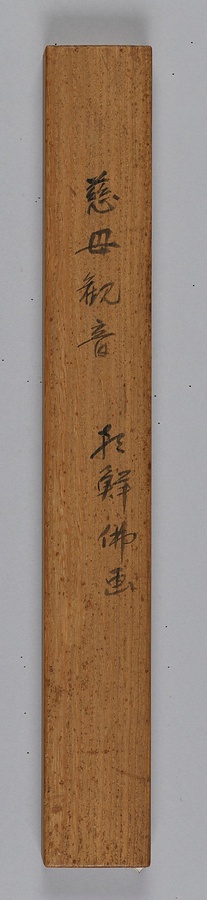 慈母観音 朝鮮佛画